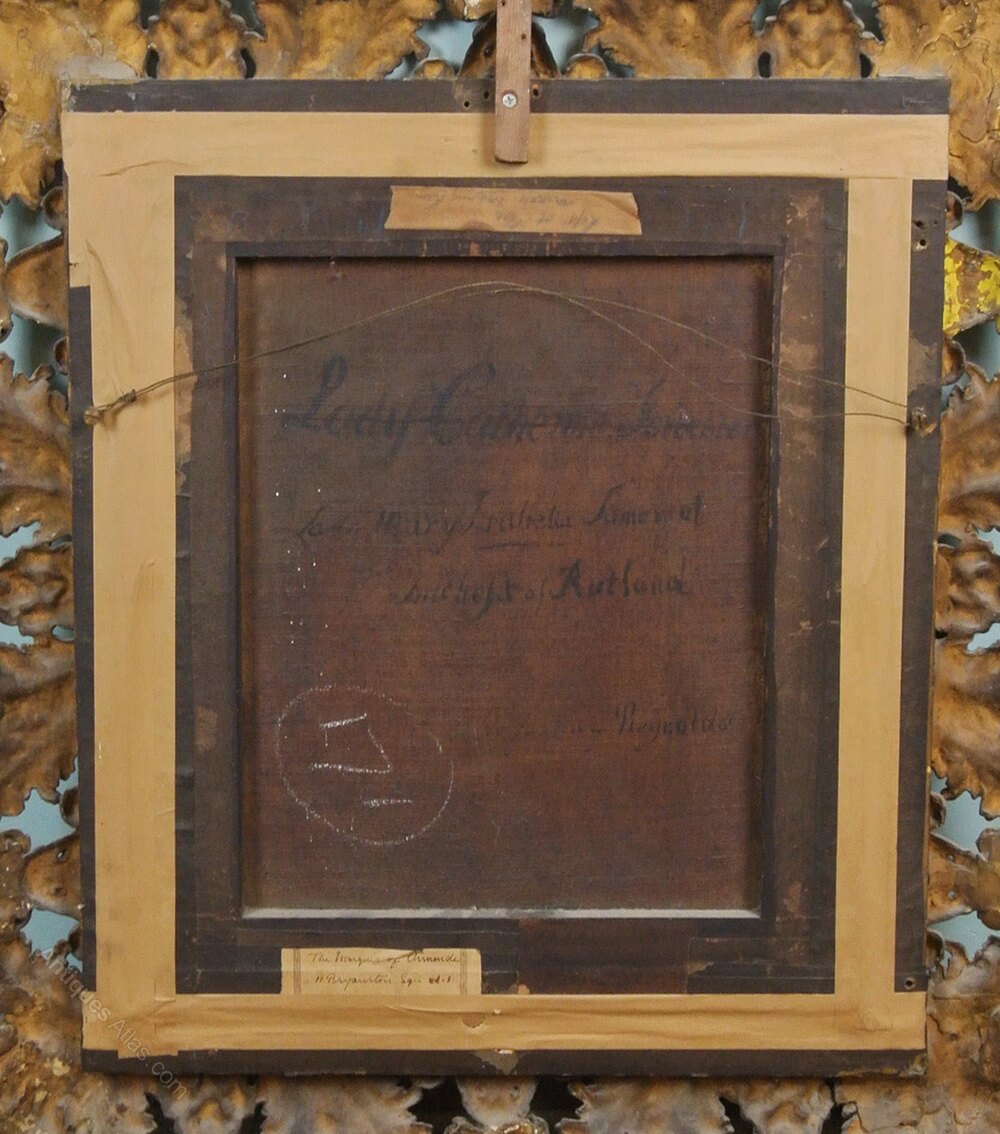 Lady Catherine
Lady Mary Isabella Somerset
Dutchess of Rutland
Reynolds
The Marquis of Ormonde
11 Bryanston Sq. W.1.
Antiques Atlas.com